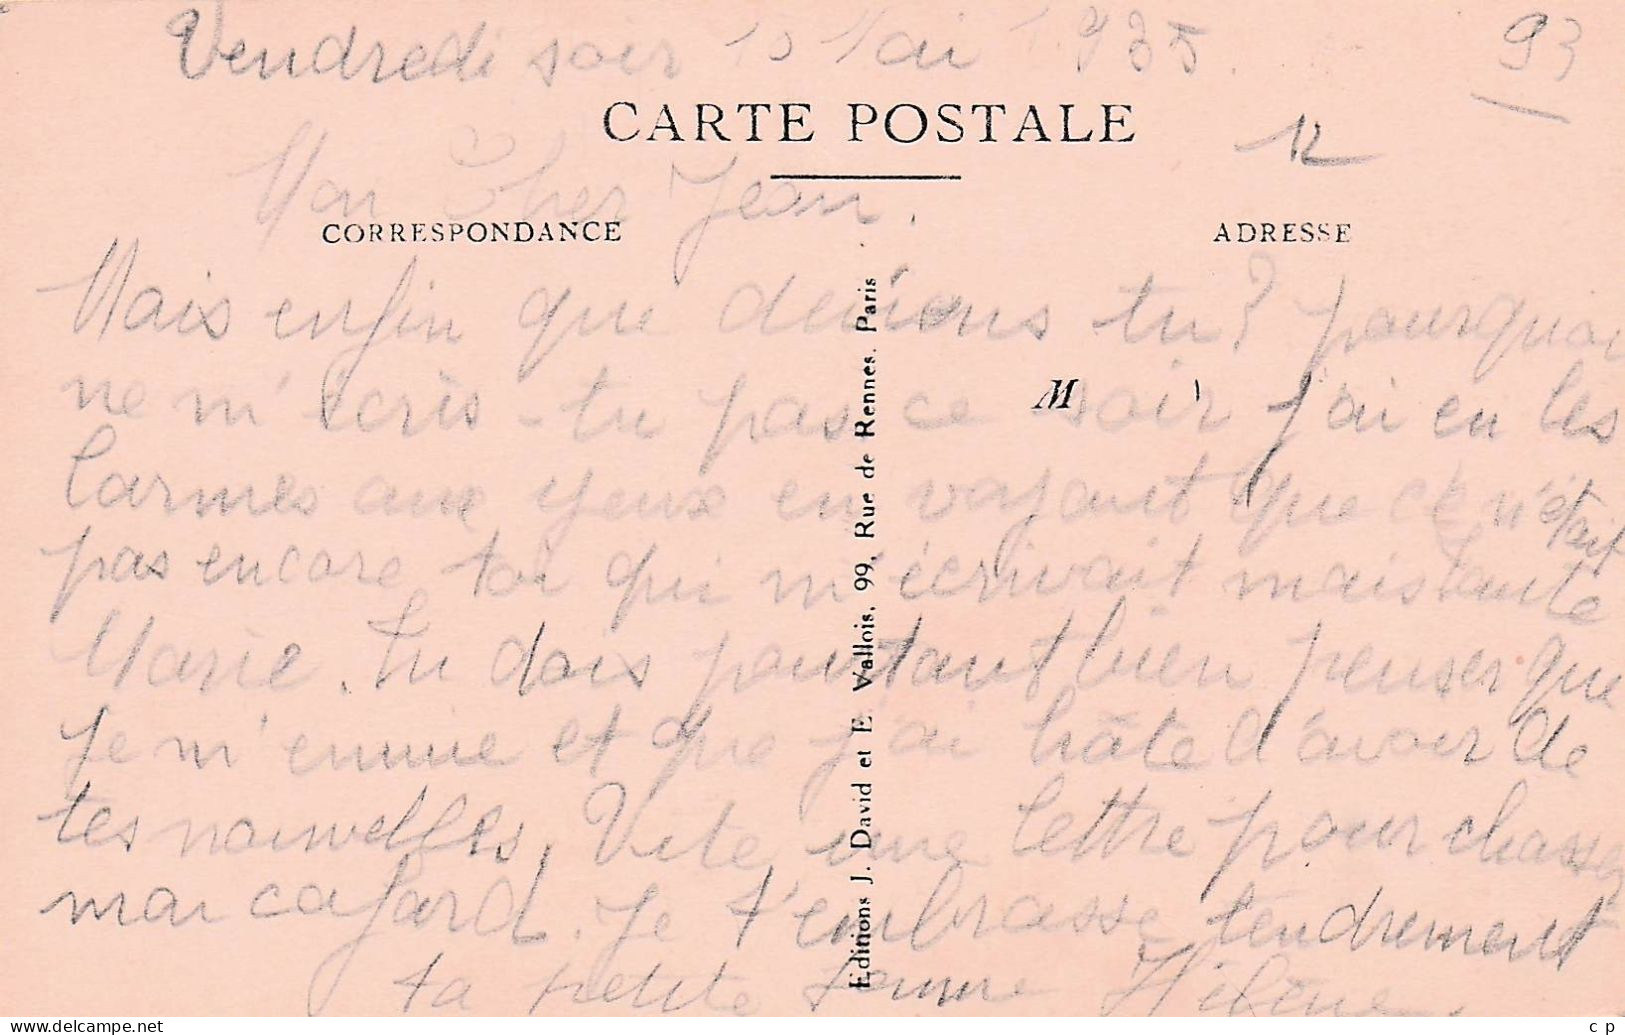 Vendredi soir 10 Mai 1935.
93
CARTE POSTALE
12
Mon Cher Jean,
CORRESPONDANCE
ADRESSE
Mais enfin que deviens tu ? pourquoi
ne m'écris-tu pas ce soir j'ai eu les
M
larmes aux yeux en voyant que ce n'était
pas encore toi qui m'écrivait mais tante
Marie. Tu dois pourtant bien penser que
je m'ennuie et que j'ai hâte d'avoir de
tes nouvelles. Vite une lettre pour chasser
mon cafard. Je t'embrasse tendrement
ta petite femme Hélène.
Editions J. David et E. Vallois, 99, Rue de Rennes. Paris
cp